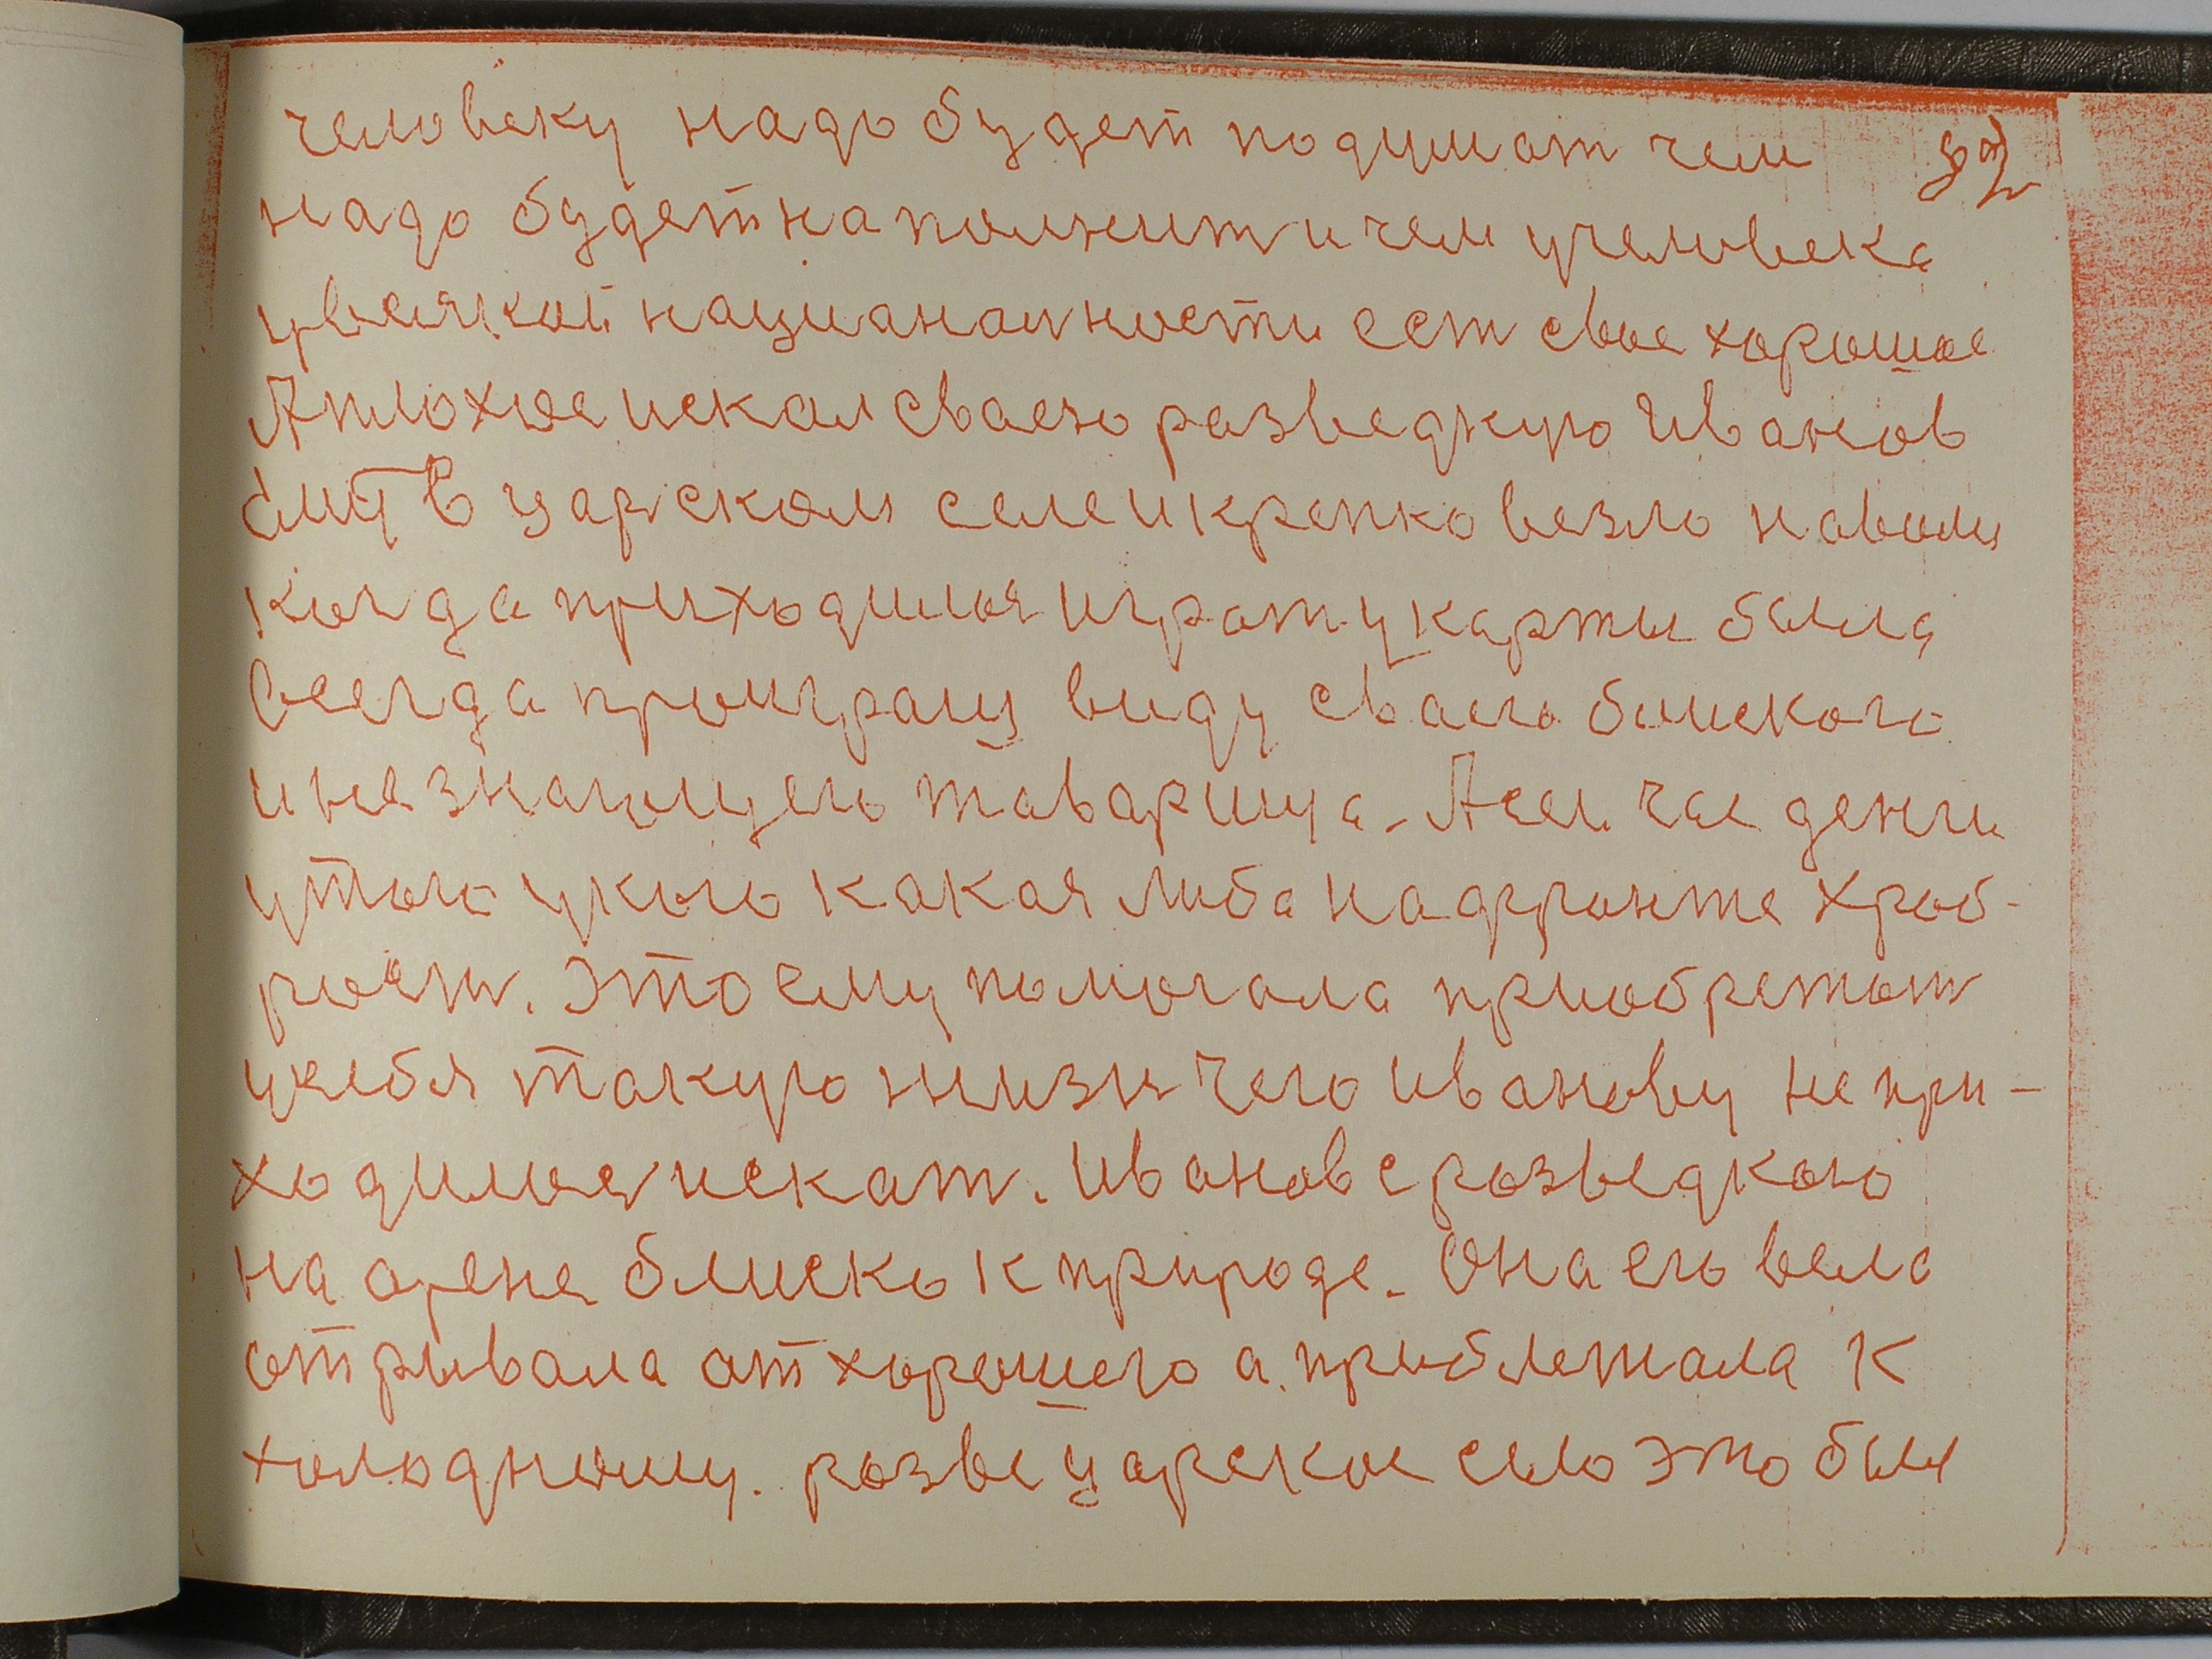 человеку надо будет подумат чем
надо будет наполнит и чем у человека
у всякой национаности ест свое хорошое
А плохое искал сваею разведкую Иванов
в царском селе и крепко везло на вом
когда приходилося играт у карты была
всегда проиграш виду сваего блиского
и не знающего таварища. А сейчас денги
у того у кого какая либа на фронте храб-
рост. Это ему помогала приобретат
у себя такую жизн чего Иванову не при-
ходилося искат. Иванов с разведкою
на арене блиско к природе. Она его вела
отрывала от хорошего а приблетала к
холодному. разве царское село это был